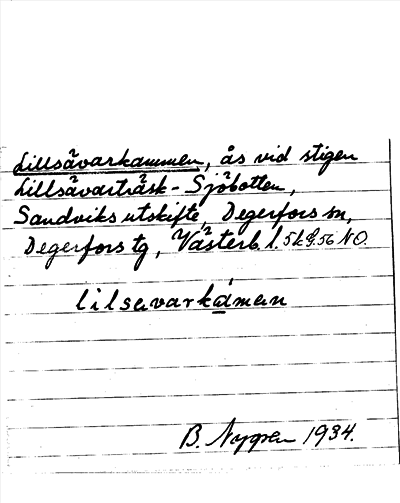 Lillsåvarkammen, ås vid stigen
Lillsåvarträsk - Sjöbotten,
Sandviks utskifte, Degerfors sn,
Degerfors tg, Västerb. l. 56 NO.
lilsavarkámen
B. Nygren 1934.